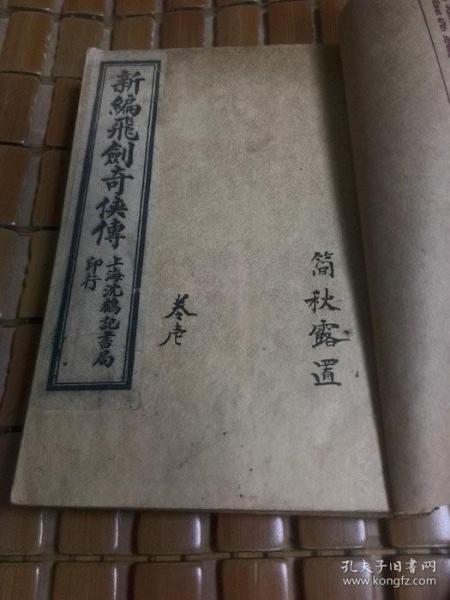 新編飛劍奇俠傳
上海沈鶴記書局
印行
卷壱
简秋露置
孔夫子旧书网
www.kongfz.com